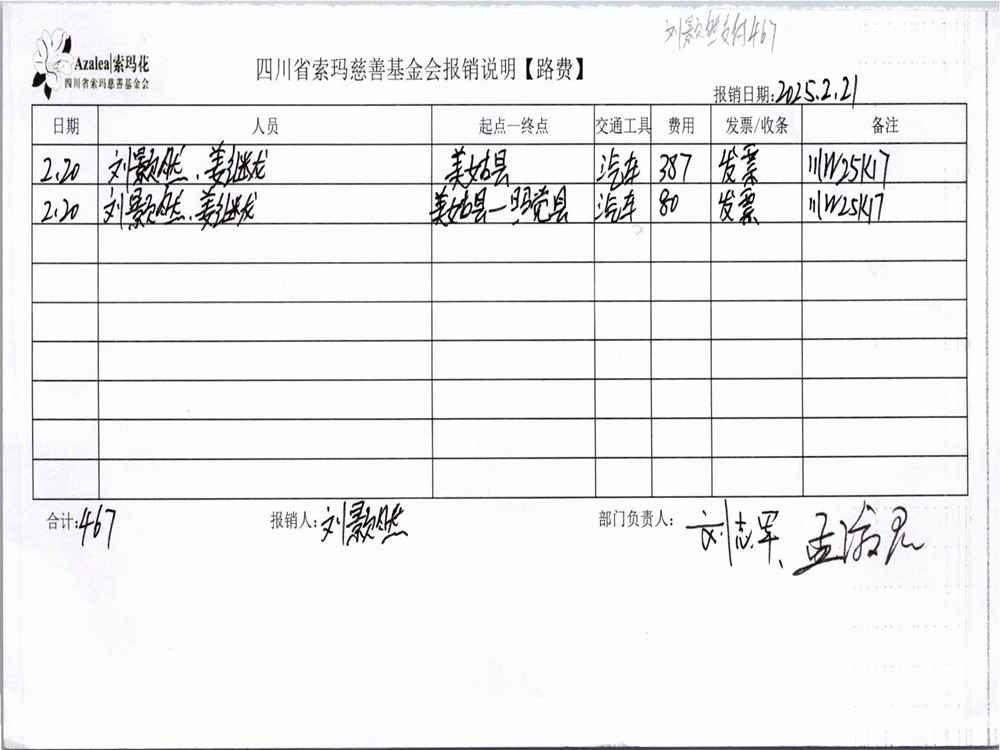 刘颢然支付467
Azalea|索玛花
四川省索玛慈善基金会
四川省索玛慈善基金会报销说明【路费】
报销日期:2025.2.21
日期 人员 起点—终点 交通工具 费用 发票/收条 备注
2.20 刘颢然、姜继龙 美姑县 汽车 387 发票 川W25K17
2.20 刘颢然、姜继龙 美姑县—昭觉县 汽车 80 发票 川W25K17
合计:467 报销人:刘颢然 部门负责人: 刘志军、孟